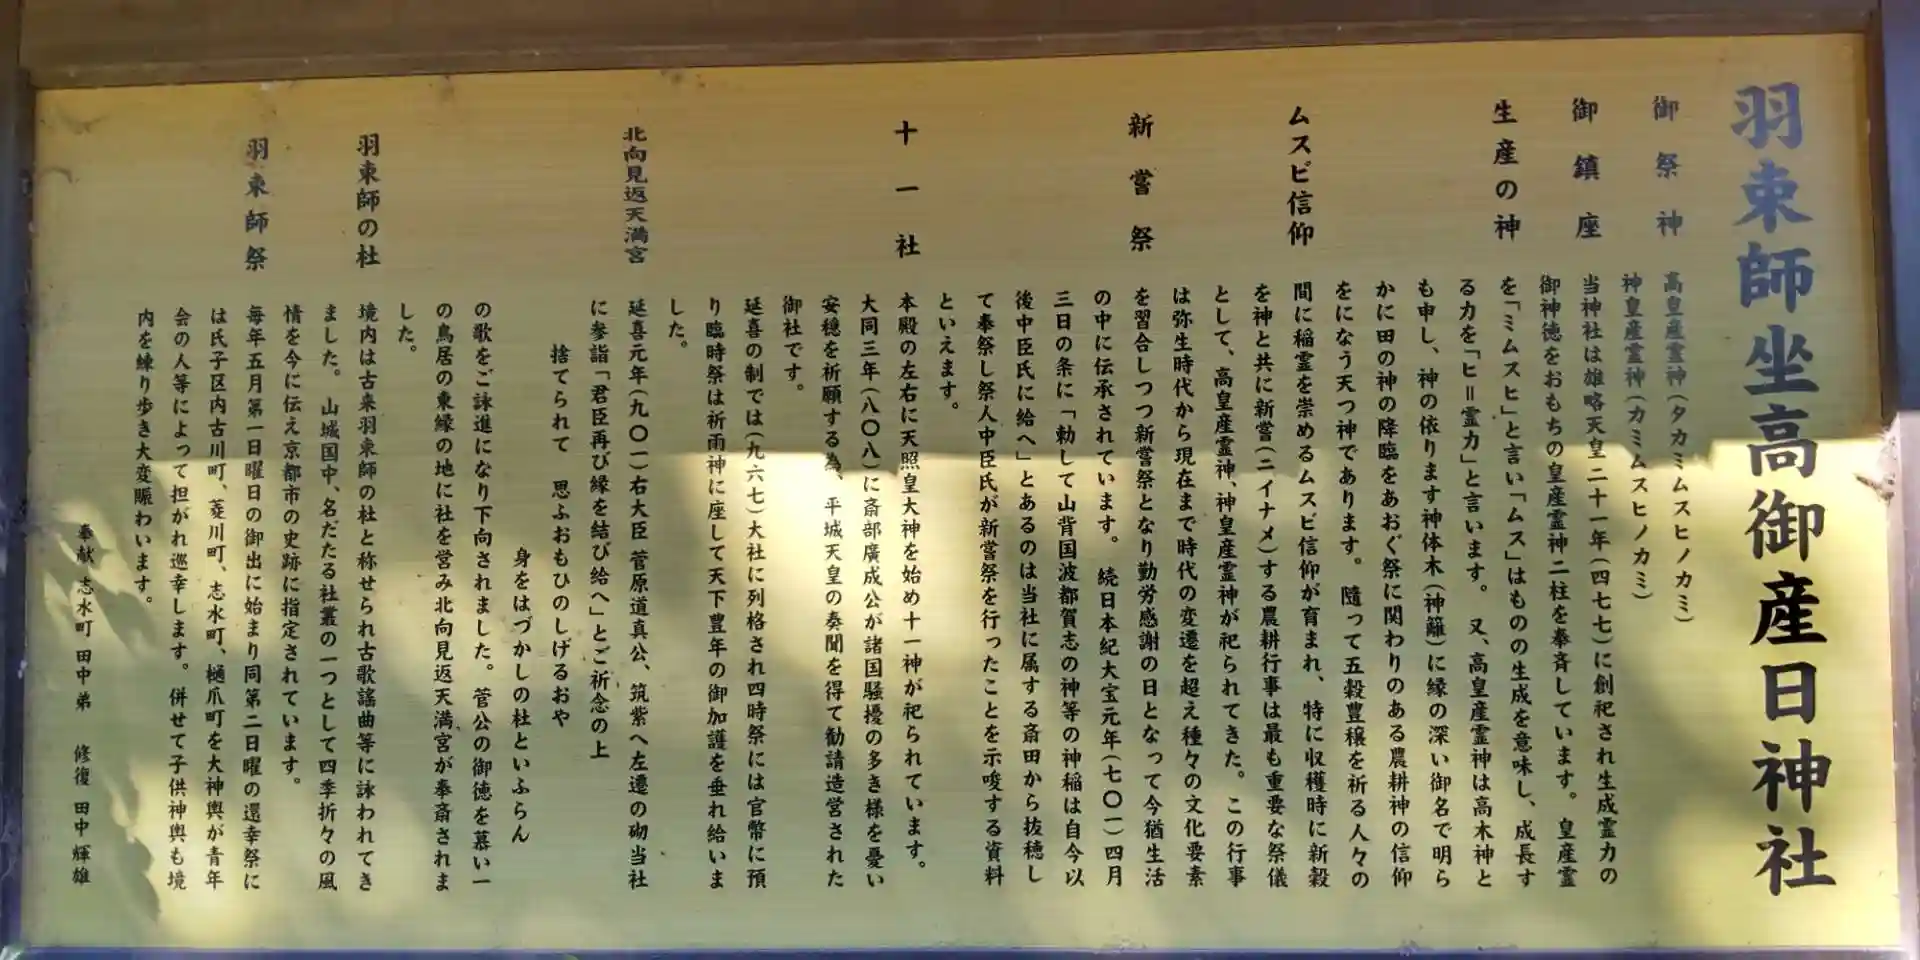 羽束師坐高御産日神社
御祭神
高皇産霊神（タカミムスヒノカミ）
神皇産霊神（カミムスヒノカミ）
御鎮座
当神社は雄略天皇二十一年（四七七）に創祀され生成霊力の
御神徳をおもちの皇産霊神二柱を奉斉しています。皇産霊
生産の神
を「ミムスヒ」と言い「ムス」はものの生成を意味し、成長す
る力を「ヒ＝霊力」と言います。又、高皇産霊神は高木神と
も申し、神の依ります神体木（神籬）に縁の深い御名で明ら
かに田の神の降臨をあおぐ祭に関わりのある農耕神の信仰
をになう天つ神であります。随って五穀豊穣を祈る人々の
ムスビ信仰
間に稲霊を崇めるムスビ信仰が育まれ、特に収穫時に新穀
を神と共に新嘗（ニイナメ）する農耕行事は最も重要な祭儀
として、高皇産霊神、神皇産霊神が祀られてきた。この行事
は弥生時代から現在まで時代の変遷を超え種々の文化要素
新嘗祭
を習合しつつ新嘗祭となり勤労感謝の日となって今猶生活
の中に伝承されています。続日本紀大宝元年（七〇一）四月
三日の条に「勅して山背国波都賀志の神等の神稲は自今以
後中臣氏に給へ」とあるのは当社に属する斎田から抜穂し
て奉祭し祭人中臣氏が新嘗祭を行ったことを示唆する資料
といえます。
十一社
本殿の左右に天照皇大神を始め十一神が祀られています。
大同三年（八〇八）に斎部廣成公が諸国騒擾の多き様を憂い
安穏を祈願する為、平城天皇の奏聞を得て勧請造営された
御社です。
延喜の制では（九六七）大社に列格され四時祭には官幣に預
り臨時祭は祈雨神に座して天下豊年の御加護を垂れ給いま
した。
北向見返天満宮
延喜元年（九〇一）右大臣 菅原道真公、筑紫へ左遷の砌当社
に参詣「君臣再び縁を結び給へ」とご祈念の上
捨てられて 思ふおもひのしげるおや
身をはづかしの杜といふらん
の歌をご詠進になり下向されました。菅公の御徳を慕い一
の鳥居の東縁の地に社を営み北向見返天満宮が奉斎されま
した。
羽束師の杜
境内は古来羽束師の杜と称せられ古歌謡曲等に詠われてき
ました。山城国中、名だたる社叢の一つとして四季折々の風
情を今に伝え京都市の史跡に指定されています。
羽束師祭
毎年五月第一日曜日の御出に始まり同第二日曜の還幸祭に
は氏子区内古川町、菱川町、志水町、樋爪町を大神輿が青年
会の人等によって担がれ巡幸します。併せて子供神輿も境
内を練り歩き大変賑わいます。
奉献 志水町 田中弟 修復 田中輝雄